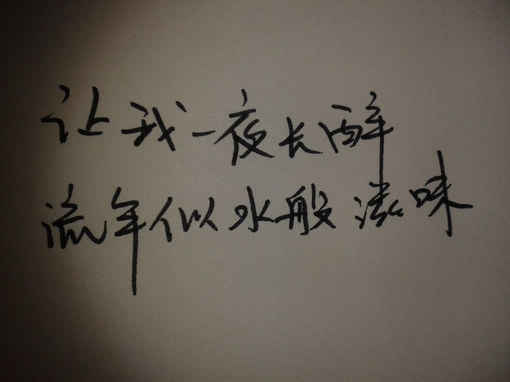 让我一夜长醉
流年似水般滋味